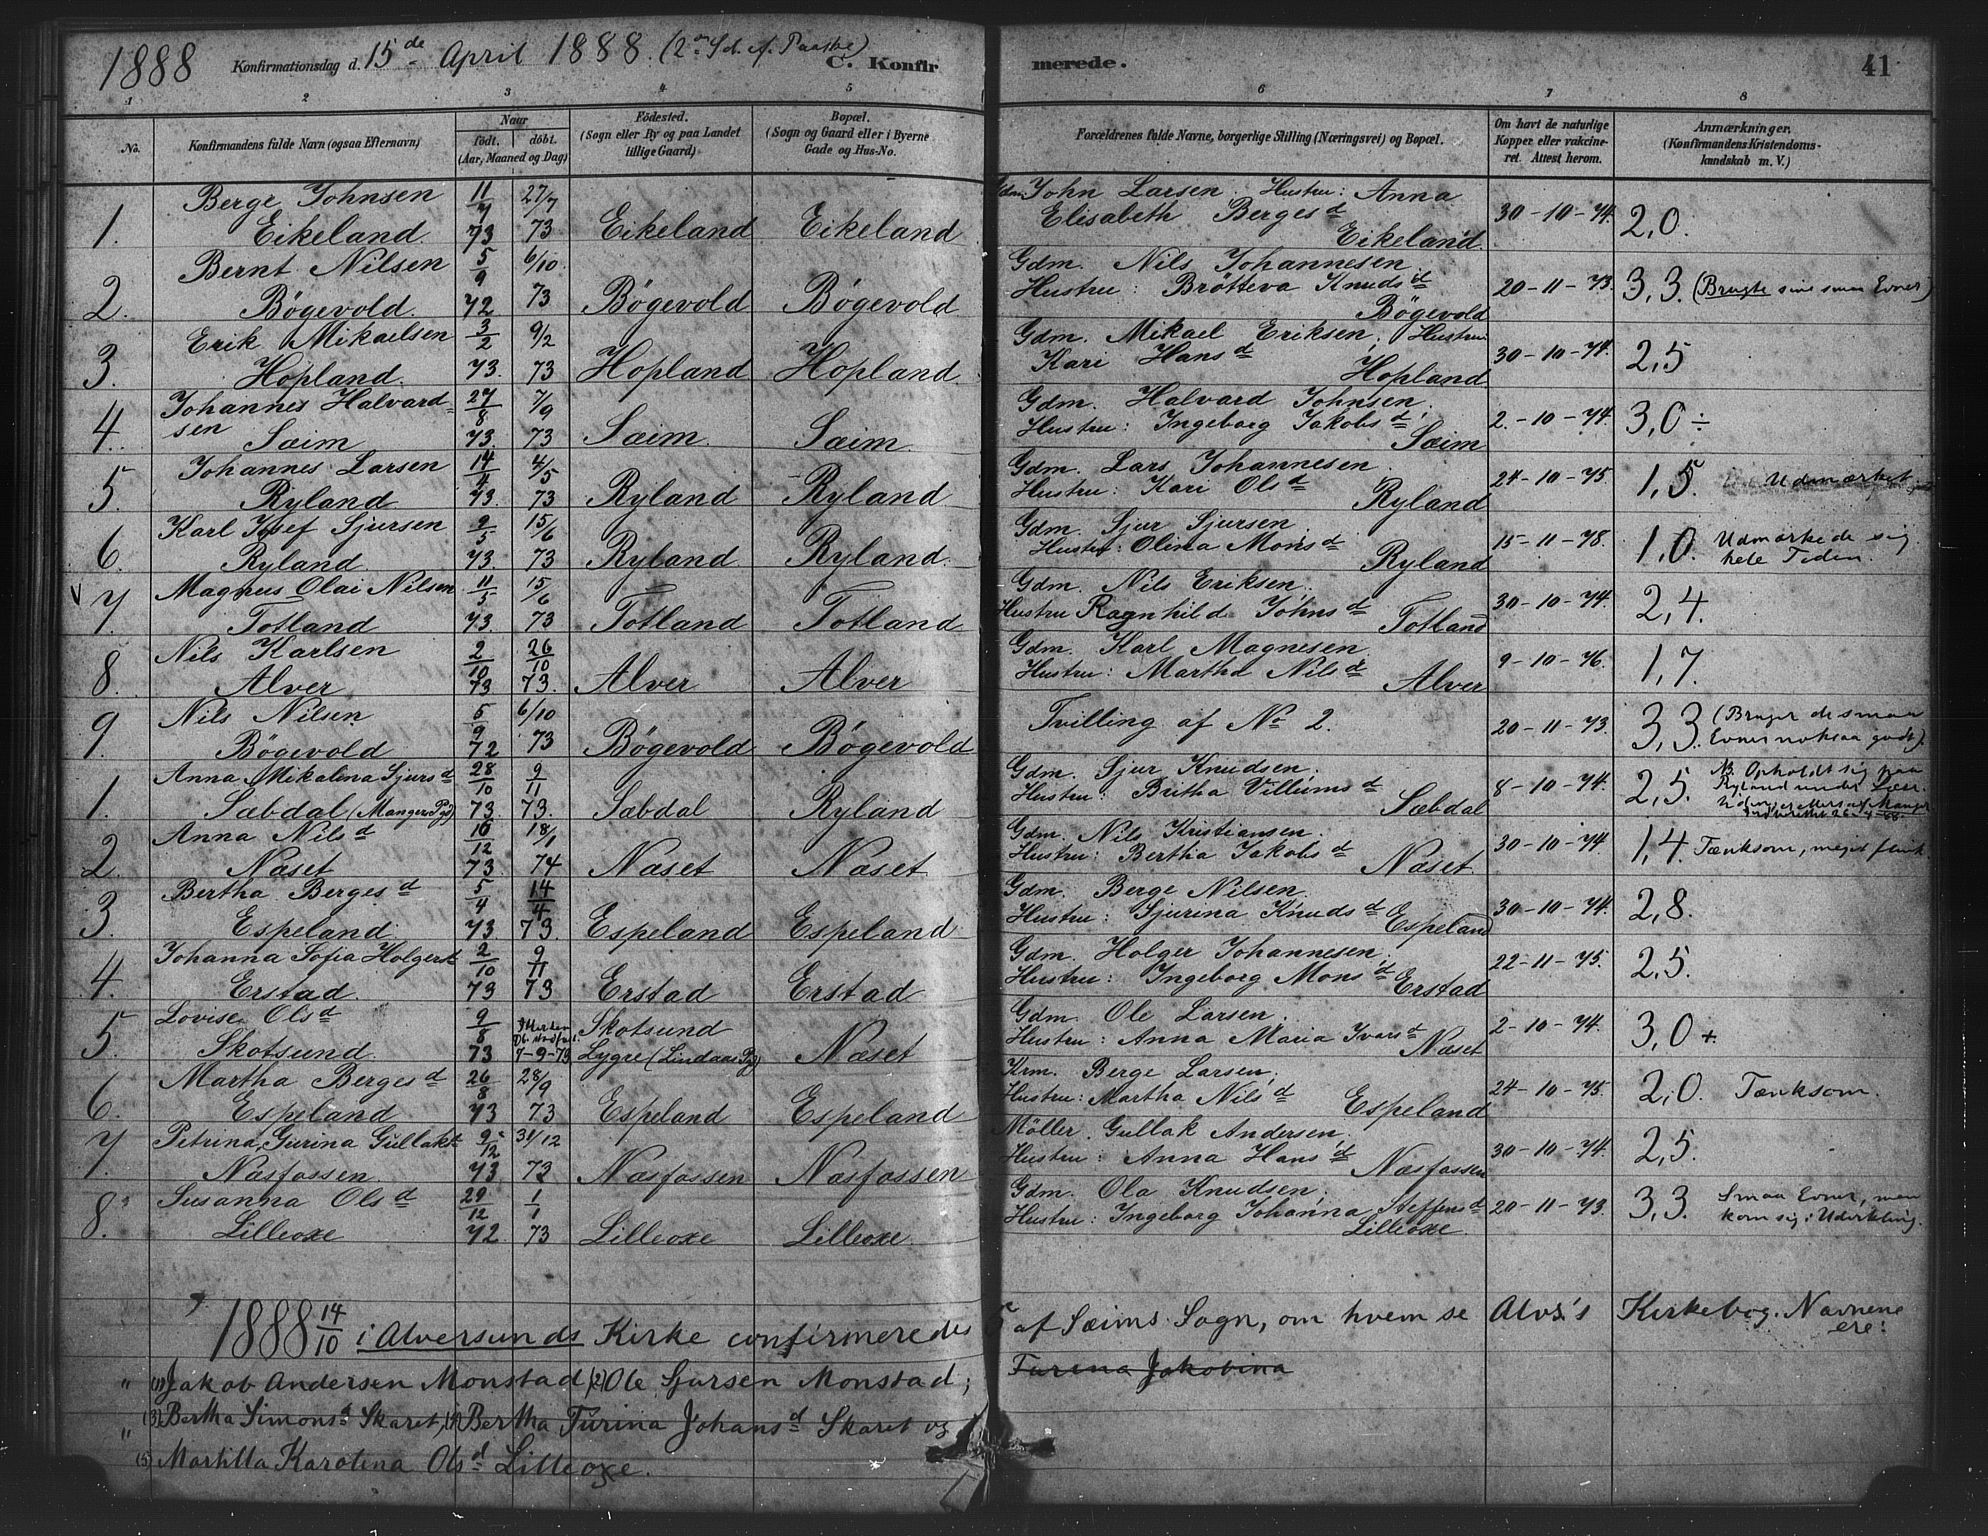 1888 Konfirmationsdag d. 15de April 1888. (2den Sd. e. Paaske) C. Konfirmerede. 41
1 2 3 4 5 6 7 8
No. Konfirmandens fulde Navn (ogsaa Efternavn) Naar født. døbt. (Aar, Maaned og Dag) Födested. (Sogn eller By og paa Landet tillige Gaard) Bopæl. (Sogn og Gaard eller i Byerne Gade og Hus-No. Forældrenes fulde Navne, borgerlige Stilling (Næringsvei) og Bopæl. Om havt de naturlige Kopper eller vakcineret. Attest herom. Anmærkninger. (Konfirmandens Kristendomskundskab m. V.)
1. Berge Johnsen Eikeland 11/7 73 27/7 73 Eikeland Eikeland Gdm John Larsen. Hustru: Anna Elisabeth Bergesd Eikeland 30-10-74. 2,0.
2. Bernt Nilsen Bögevold. 5/9 72 6/10 73 Bögevold Bögevold Gdm. Nils Johannesen. Hustru: Brötteva Knudsd Bögevold 20-11-73. 3,3. (Brugte sine smaa Evner)
3. Erik Mikaelsen Hopland. 3/2 73. 9/2 73 Hopland Hopland Gdm. Mikael Eriksen. Hustru Kari Hansd Hopland 30-10-74. 2,5
4. Johannes Halvardsen Sæim 27/8 73. 7/9 73 Sæim Sæim Gdm. Halvard Johnsen. Hustru: Ingeborg Jakobsd Sæim 2.-10-74. 3,0 ÷
5. Johannes Larsen Ryland 14/4 73. 4/5 73 Ryland Ryland Gdm. Lars Johannesen. Hustru: Kari Olsd Ryland 24-10-75 1,5. Udmærket.
6. Karl Josef Sjursen Ryland 2/5 73. 15/6 73 Ryland Ryland. Gdm. Sjur Sjursen. Hustru: Olina Monsd Ryland 15-11-78. 1,0. Udmærkede sig hele Tiden.
V 7. Magnus Olai Nilsen Totland 11/5 73. 15/6 73 Totland Totland Gdm. Nils Eriksen. Hustru Ragnhild Johnsd Totland 30-10-74. 2,4.
8. Nils Karlsen Alver 2/10 73 26/10 73. Alver Alver Gdm. Karl Magnesen. Hustru: Martha Nilsd Alver 9-10-76. 1,7.
9. Nils Nilsen Bögevold 5/9 72 6/10 73 Bögevold Bögevold Tvilling af No 2. 20-11-73. 3,3. (Bruger de smaa Evner noksaa godt).
1. Anna Mikalina Sjursd Sæbdal (Mangers Pgd) 28/10 73 9/11 73. Sæbdal Ryland Gdm. Sjur Knudsen. Hustru: Britha Villumsd Sæbdal 8-10-74. 2,5. NB. Opholdt sig paa Ryland under Læsn.
2. Anna Nilsd Næset 16/12 73. 18/1 74 Næset Næset Gdm. Nils Kristiansen. Hustru: Bertha Jakobsd Næset 30-10-74. 1,4. Tænksom, meget flink.
3. Bertha Bergesd Espeland. 5/4 73. 14/4 73. Espeland Espeland Gdm. Berge Nilsen. Hustru: Sjurina Knudsd Espeland 30-10-74. 2,8.
4. Johanna Sofia Holgersd Erstad. 2/10 73 9/11 73 Erstad Erstad Gdm. Holger Johannesen. Hustru: Ingeborg Monsd Erstad 22-11-75. 2,5.
5. Lovise Olsd Skotsund. 9/8 73 7-9-73 Skotsund Lygre (Lindaas Pgd) Næset Gdm. Ole Larsen. Hustru: Anna Maria Ivarsd Næset 2-10-74. 3,0 +
6. Martha Bergesd Espeland 26/8 73 28/9 73 Espeland Espeland Krm. Berge Larsen. Hustru: Martha Nilsd Espeland 24-10-75. 2,0. Tænksom.
7. Petrina Gurina Gullaksd Næsfossen 9/12 73 31/12 73 Næsfossen Næsfossen Möller Gullak Andersen. Hustru: Anna Hansd Næsfossen 30-10-74. 2,5.
8. Susanna Olsd Lilleoxe 29/12 72 1/1 73 Lilleoxe Lilleoxe. Gdm. Ola Knudsen. Hustru: Ingeborg Johanna Steffensd Lilleoxe. 20-11-73. 3,3. Smaa Evner, men kom sig i Udvikling.
1888 14/10 i Alversunds Kirke confirmeredes 5 af Sæims Sogn, om hvem se Alvs's Kirkebog. Navnene ere:
" (1) Jakob Andersen Monstad, (2) Ole Sjursen Monstad; Turina Jakobina
" (3) Bertha Simonsd Skaret, (4) Bertha Turina Johansd Skaret og
(5) Martilla Karolina Olsd Lilleoxe.